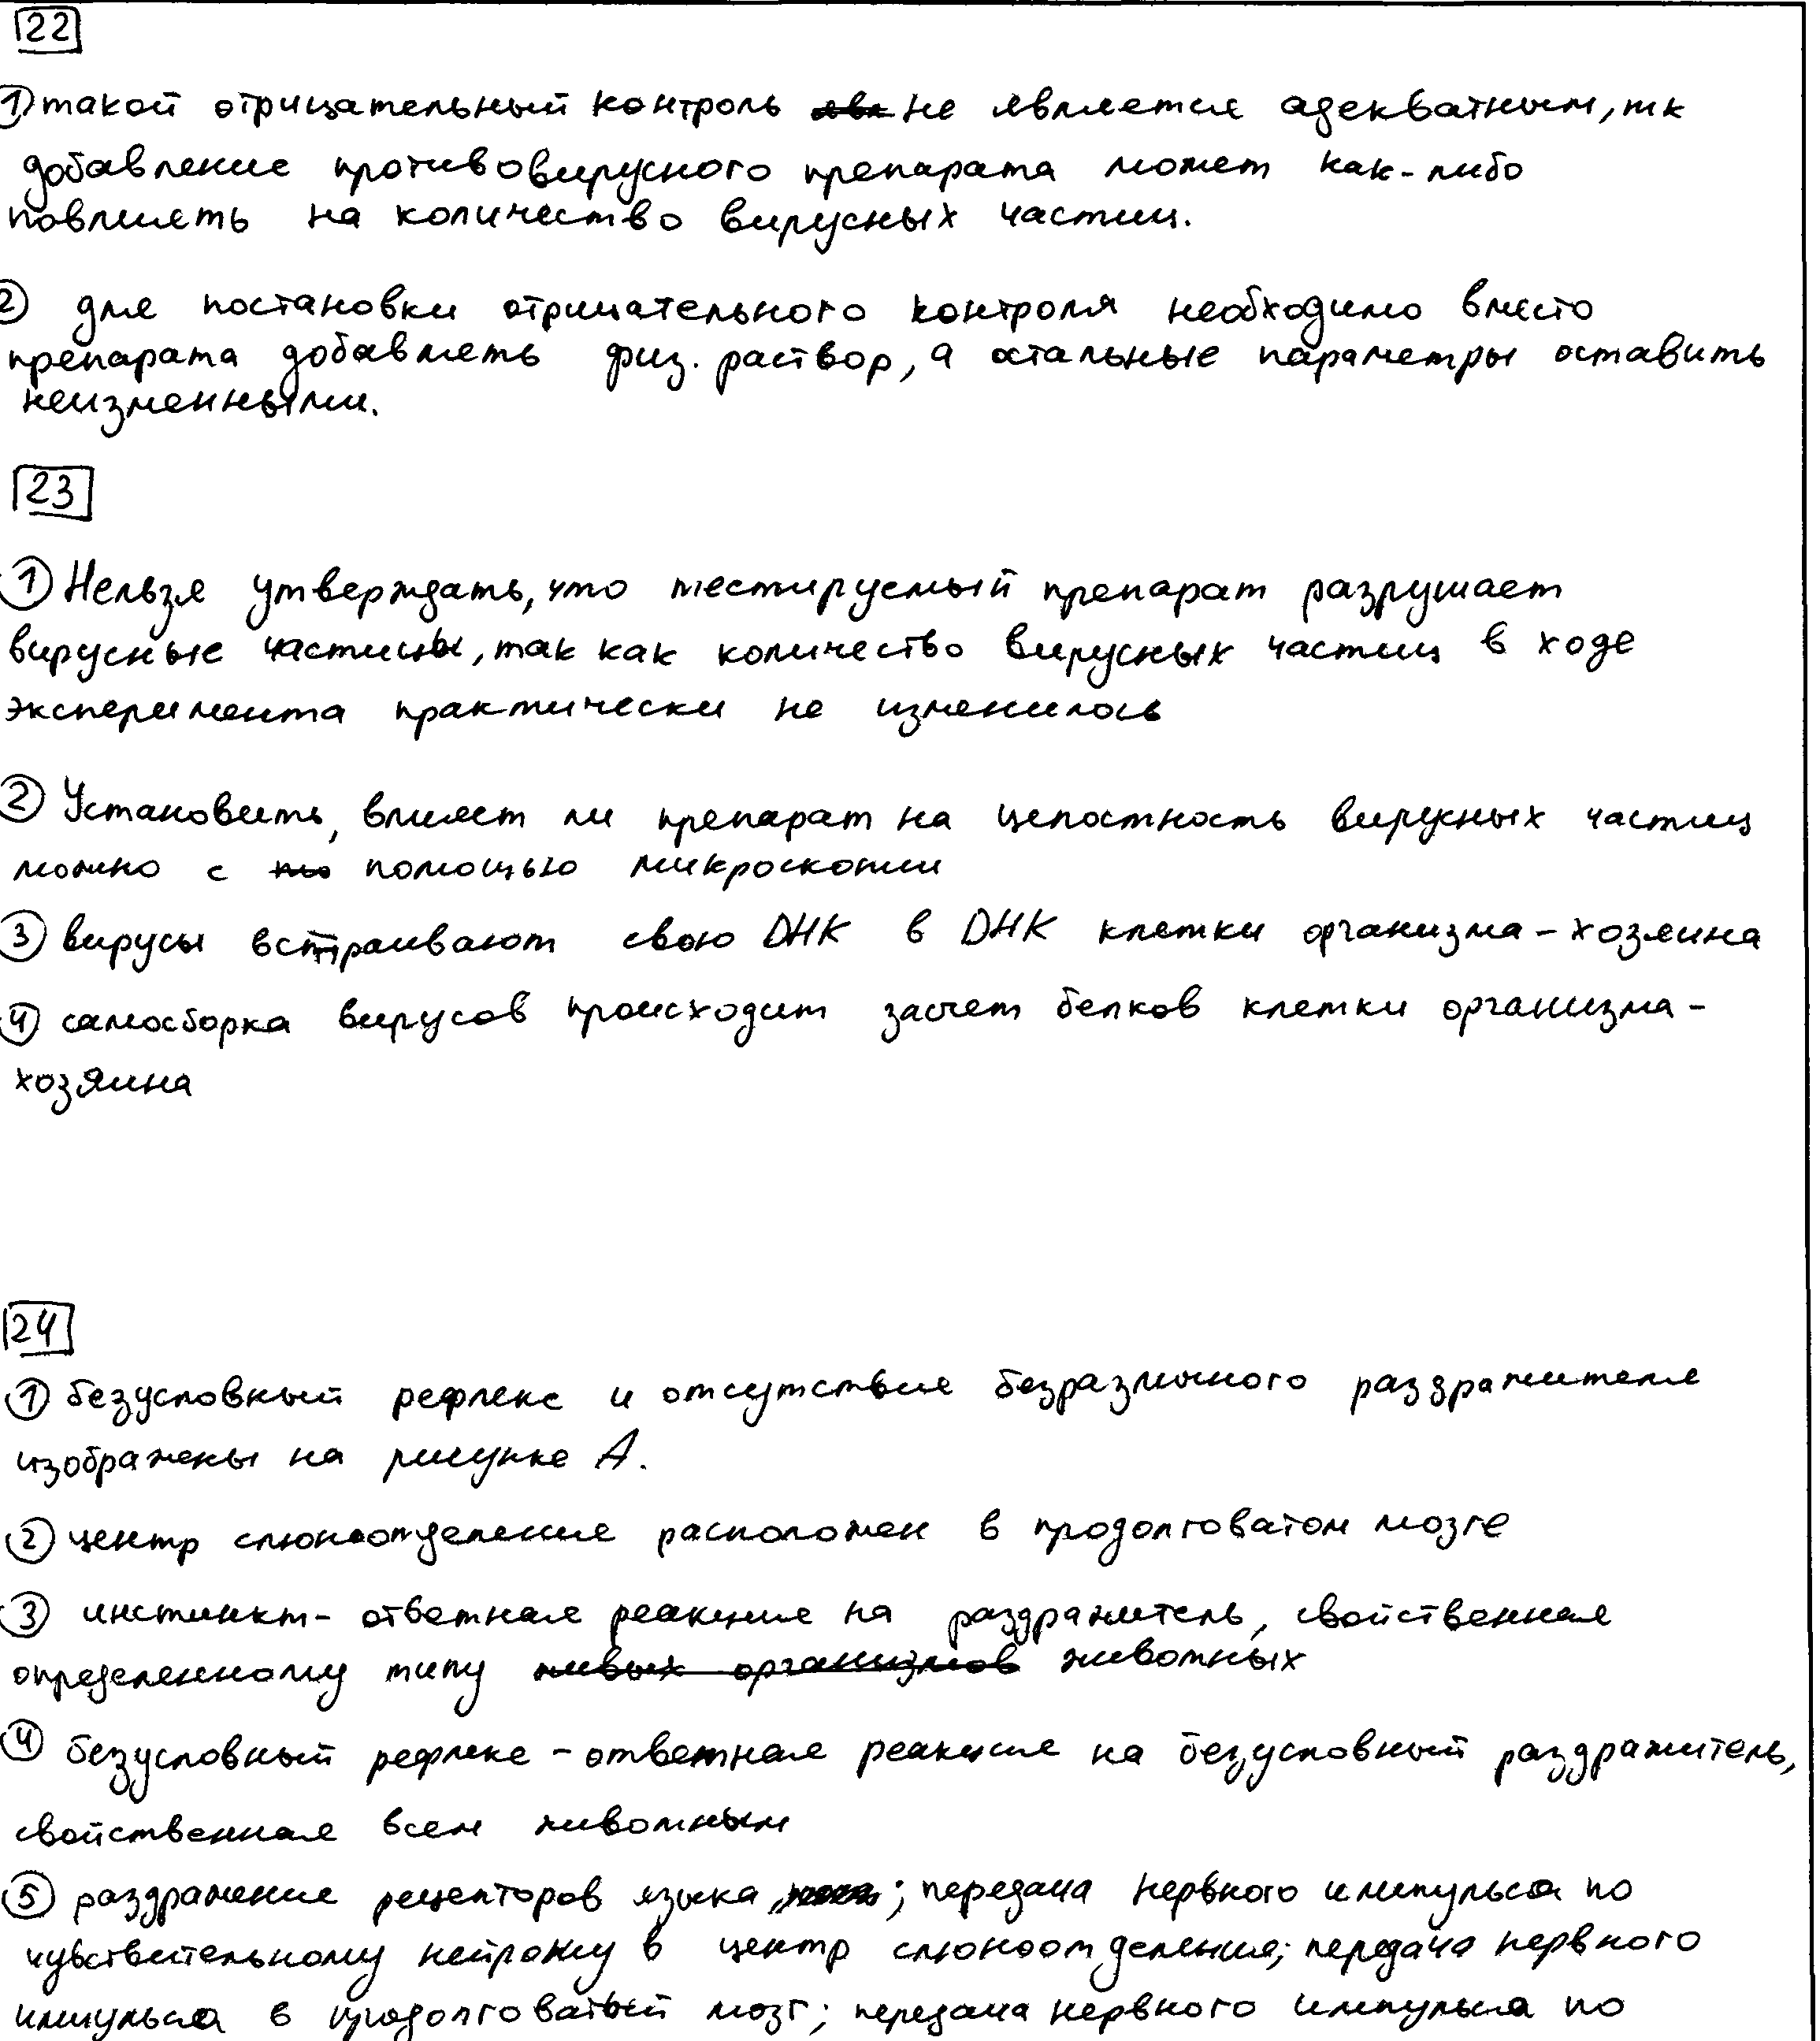 22
1) такой отрицательный контроль не является адекватным, тк
добавление противовирусного препарата может как-либо
повлиять на количество вирусных частиц.
2) для постановки отрицательного контроля необходимо вместо
препарата добавлять физ. раствор, а остальные параметры оставить
неизменными.
23
1) Нельзя утверждать, что тестируемый препарат разрушает
вирусные частицы, так как количество вирусных частиц в ходе
эксперимента практически не изменилось
2) Установить, влияет ли препарат на целостность вирусных частиц
можно с помощью микроскопии
3) вирусы встраивают свою ДНК в ДНК клетки организма-хозяина
4) самосборка вирусов происходит засчет белков клетки организма-
хозяина
24
1) безусловный рефлекс и отсутствие безразличного раздражителя
изображены на рисунке А.
2) центр слюноотделения расположен в продолговатом мозге
3) инстинкт - ответная реакция на раздражитель, свойственная
определенному типу живых организмов животных
4) безусловный рефлекс - ответная реакция на безусловный раздражитель,
свойственная всем животным
5) раздражение рецепторов языка; передача нервного импульса по
чувствительному нейрону в центр слюноотделения; передача нервного
импульса в продолговатый мозг; передача нервного импульса по